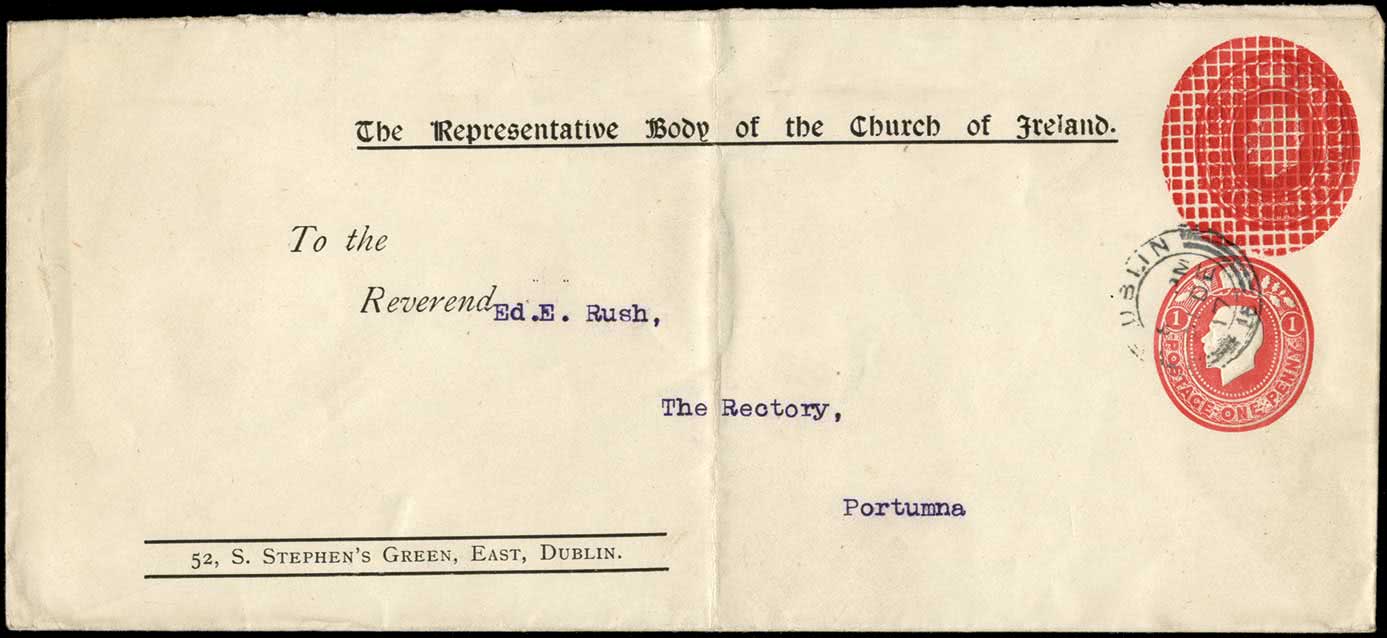 The Representative Body of the Church of Ireland.
To the
Reverend Ed.E. Rush,
The Rectory,
Portumna
52, S. Stephen's Green, East, Dublin.
DUBLIN
DE
17
1 1
POSTAGE ONE PENNY